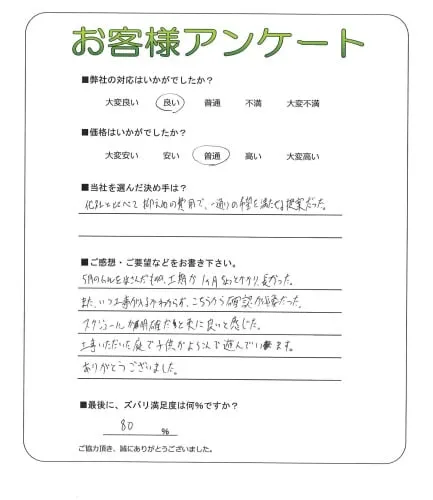 お客様アンケート
■弊社の対応はいかがでしたか?
大変良い 良い 普通 不満 大変不満
■価格はいかがでしたか?
大変安い 安い 普通 高い 大変高い
■当社を選んだ決め手は?
他社と比べて抑え目の費用で、一通りの希望を満たせる提案だった。
■ご感想・ご要望などをお書き下さい。
5月のGWをはさんだものの、工期が1ヶ月ちょっとと少し長かった。
また、いつ工事が入るかわからず、こちらから確認が必要だった。
スケジュールが明確だと更に良いと感じた。
工事いただいた庭で子供がよろこんで遊んでいます。
ありがとうございました。
■最後に、ズバリ満足度は何%ですか?
80 %
ご協力頂き、誠にありがとうございました。